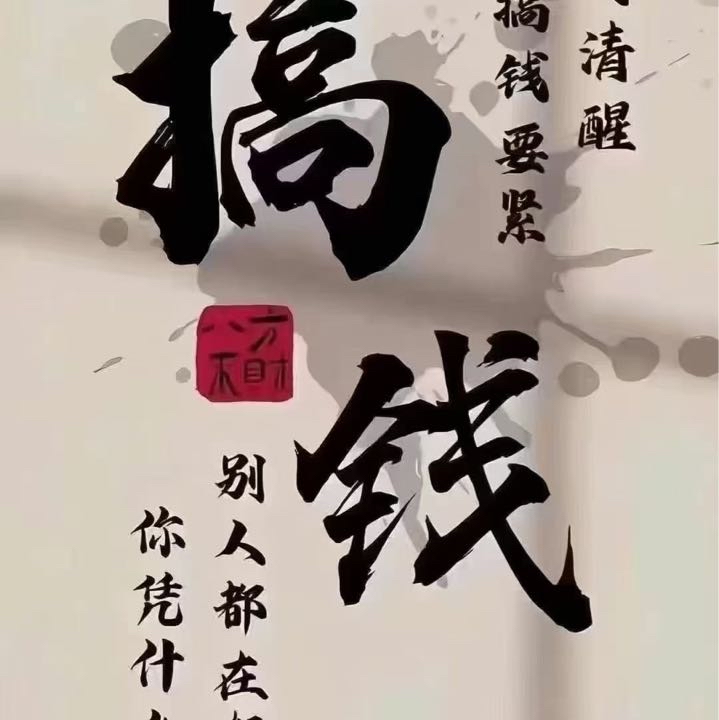 清醒
搞钱要紧
搞
钱
八方
来财
别人都在
你凭什